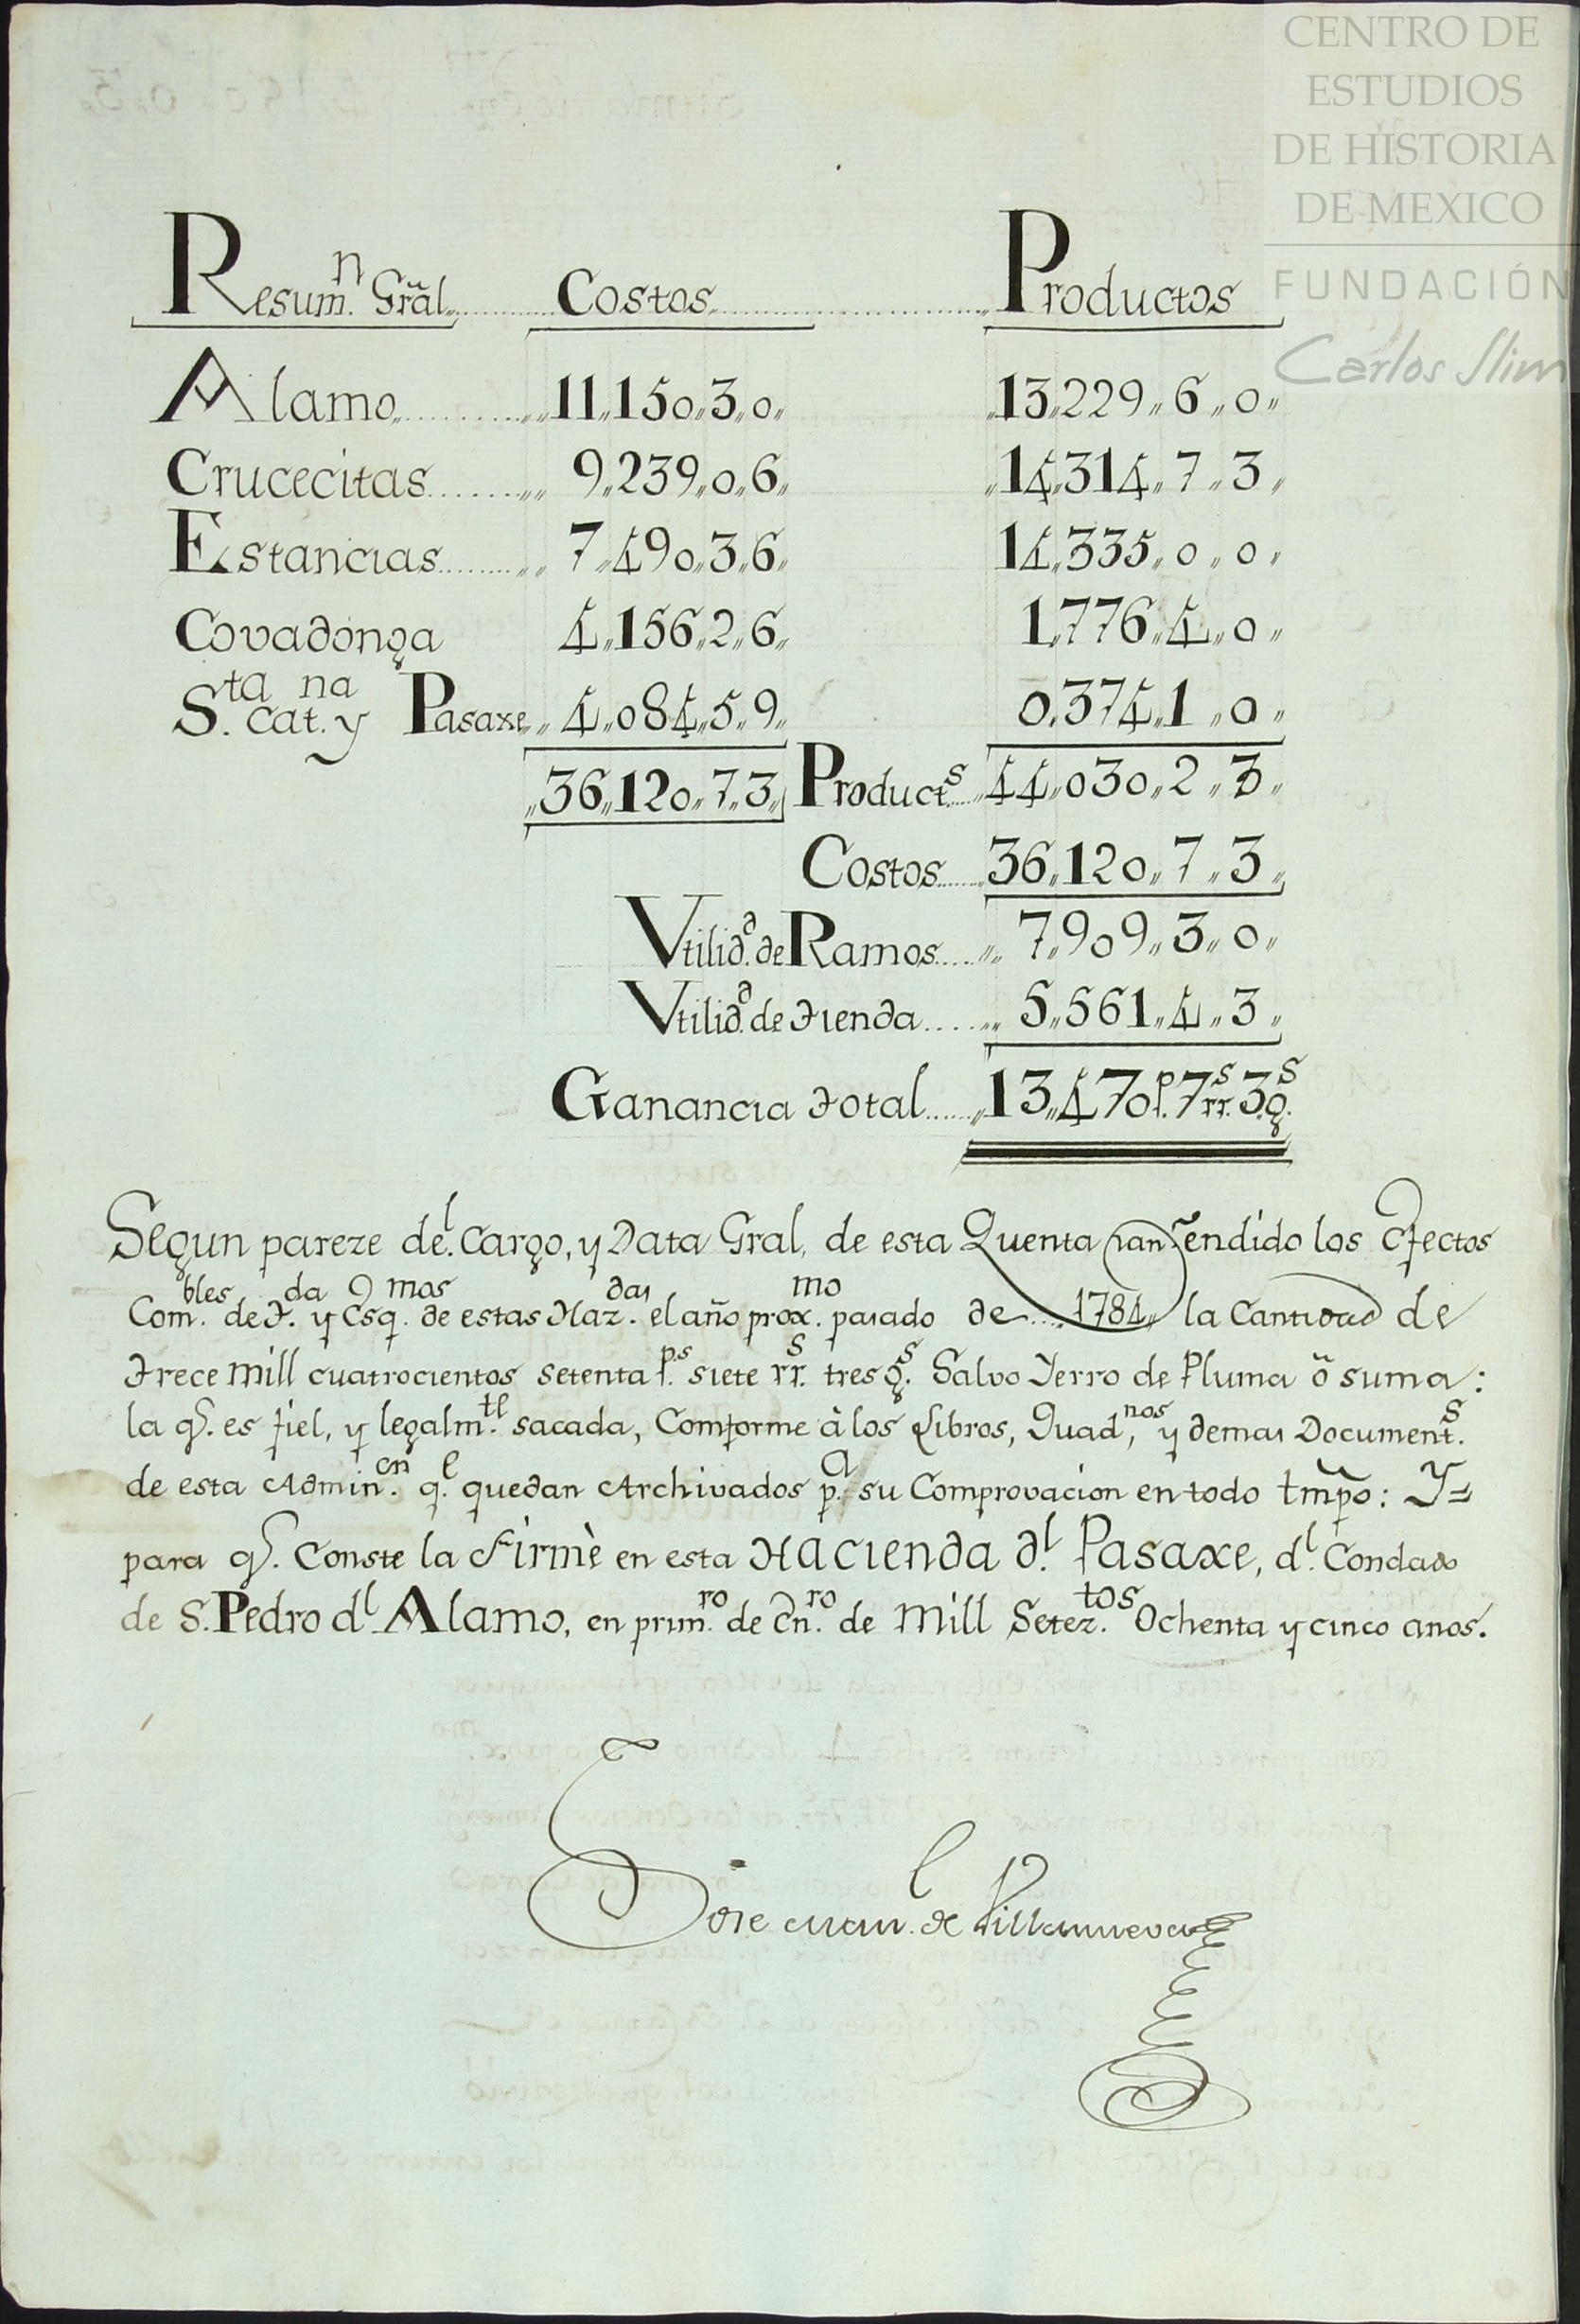 CENTRO DE
ESTUDIOS
DE HISTORIA
DE MEXICO
FUNDACIÓN
Carlos Slim
Resum.n Grãl. Costos Productos
Alamo 11,,150,,3,,0,, 13,,229,,6,,0,,
Crucecitas 9,,239,,0,,6,, 14,,314,,7,,3,,
Estancias 7,,490,,3,,6,, 14,,335,,0,,0,,
Covadonga 4,,156,,2,,6,, 1,,776,,4,,0,,
S.ta Cat.na y Pasaxe 4,,084,,5,,9,, 0,,374,,1,,0,,
36,,120,,7,,3,, Product.s 44,,030,,2,,3,,
Costos 36,,120,,7,,3,,
Vtilid.d de Ramos 7,,909,,3,,0,,
Vtilid.d de tienda 5,,561,,4,,3,,
Ganancia total 13,,470 p.s 7 rr.s 3 g.s
Segun pareze de.l Cargo, y Data Gral, de esta Quenta han rendido los Efectos
Com.bles de t.da y Esq.mos de estas Haz.das el año prox.mo pasado de 1784,, la Cantidad de
trece mill cuatrocientos setenta p.s siete rr.s tres g.s Salvo Yerro de Pluma õ suma:
la q.e es fiel, y legalm.te sacada, Comforme â los Libros, Quad,nos y demas Document.s
de esta Admin.cn q.e quedan Archivados p.a su Comprovacion en todo tmpo: Y=
para q.e Conste la Firmè en esta Hacienda d.l Pasaxe, d.l Condado
de S. Pedro d.l Alamo, en prim.ro de En.ro de Mill Setez.tos Ochenta y cinco anos.
Jose Man.l de Villanueva